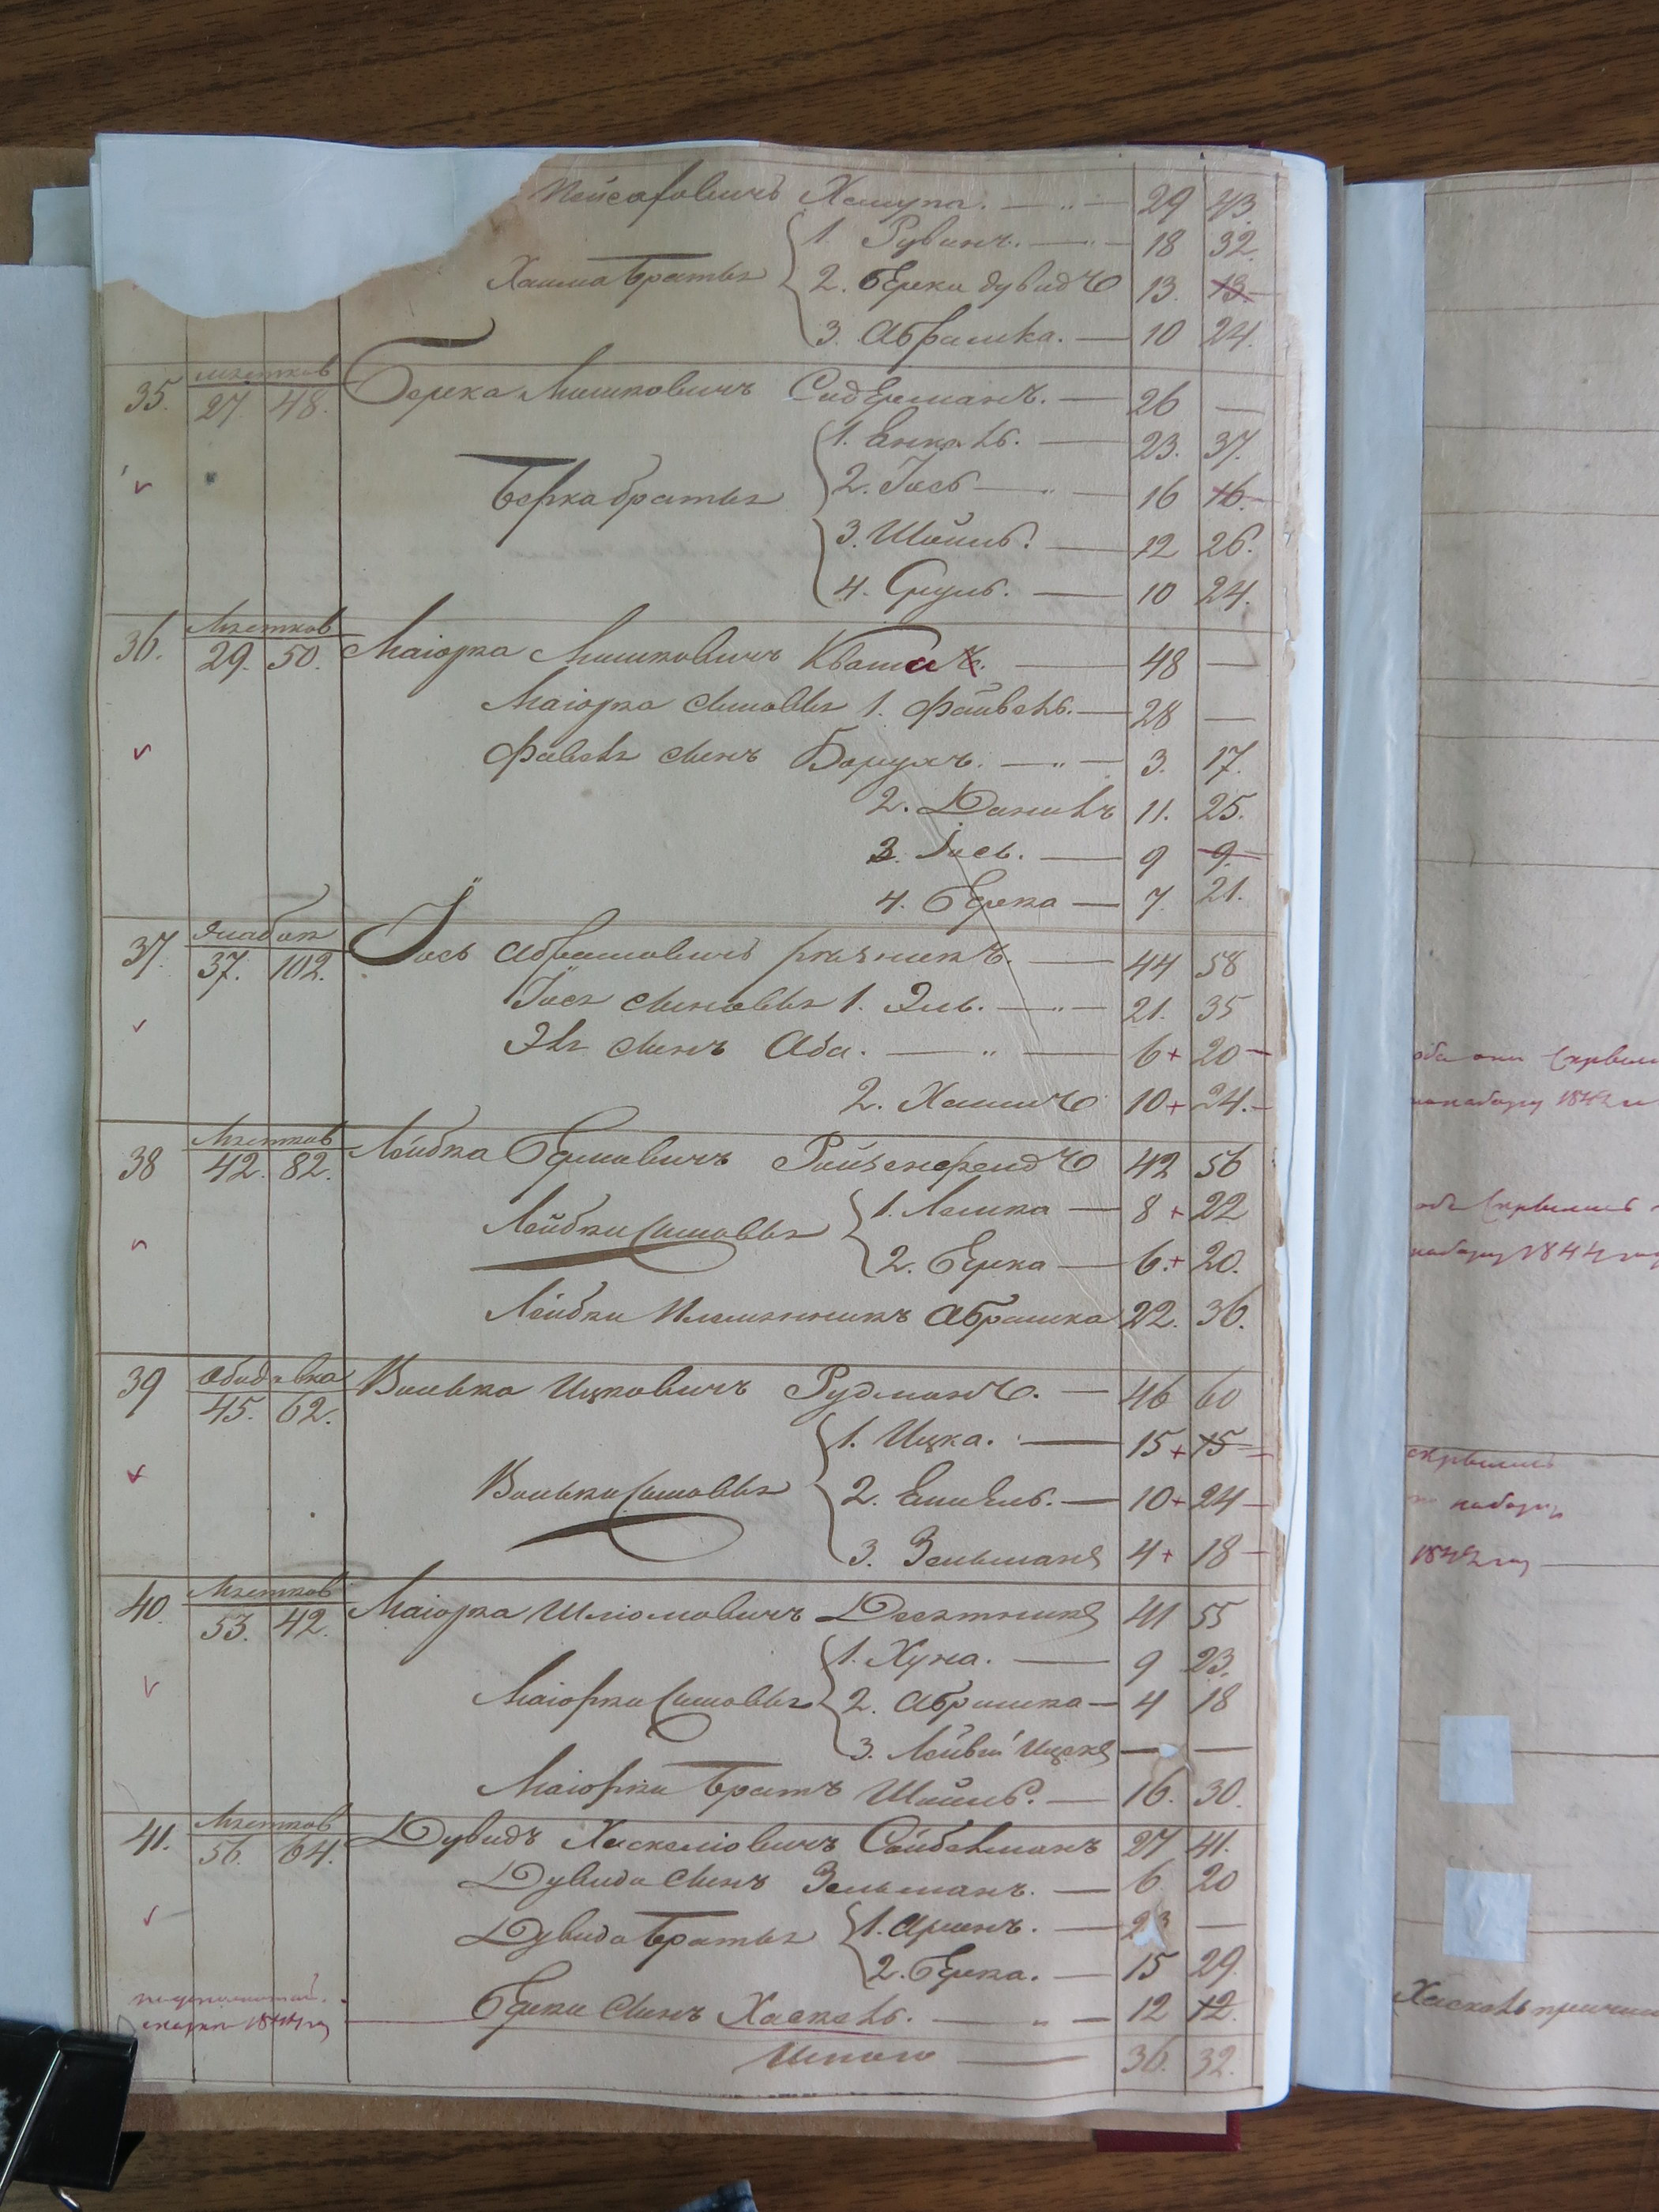 Пейсаховичъ 29 43.
1. Рувинъ. 18 32.
Хаима братья 2. Берки дувидъ 13. 13
3. Абрамка. 10 24.
35. мястков
27. 48. Берка Мошковичъ Сидерманъ. 26 —
1. 23. 37.
Берка братья 2. Іось 16 16
3. Шоилъ. 12 26.
4. Сруль. 10 24.
36. Мястков
29. 50. Маіорка Мошковичъ Квашa 48 —
Маіорка сыновья 1. Файвель. 28 —
Фавеля сынъ Борухъ. 3. 17.
2. Данилъ 11. 25.
3. Іось. 9 9.
4. Берка 7. 21.
37.
37. 102. Іось Абрамовичъ резникъ. 44 58
Іося сыновья 1. Эль. 21. 35
Эля сынъ Аба. 6 + 20
2. Хаимъ 10 + 24.
38 Мястков
42. 82. Лейбка Берковичъ Ройзенфендъ 42 56
Лейбки сыновья 1. Лешка 8 + 22
2. Берка 6. + 20.
Лейбки племянникъ Абрамка 22. 36.
39 Ободовка
45. 62. Волька Ицковичъ Рудманъ. 46 60
1. Ицка. 15 + 15
Вольки сыновья 2. 10 + 24
3. Зельманъ 4 + 18
40. Мястков
53. 42. Маіорка Шліомовичъ Десятникъ 41 55
1. Хуна. 9 23.
Маіорки сыновья 2. Абрамка 4 18
3. Лейви Ицекъ — —
Маіорки братъ Шоилъ. 16. 30.
41. Мястков
56. 64. Дувидъ Хаскеліовичъ Сойбельманъ 27 41.
Дувида сынъ Зельманъ. 6 20
Дувида братья 1. Аронъ. 23 —
2. Берка. 15 29.
Берки сынъ Хаскель. 12 12.
1844
Итого 36. 32.
оба они скрылись
1842
оба скрылись
набору 1844
скрылись
по набору
1842
Хаскель